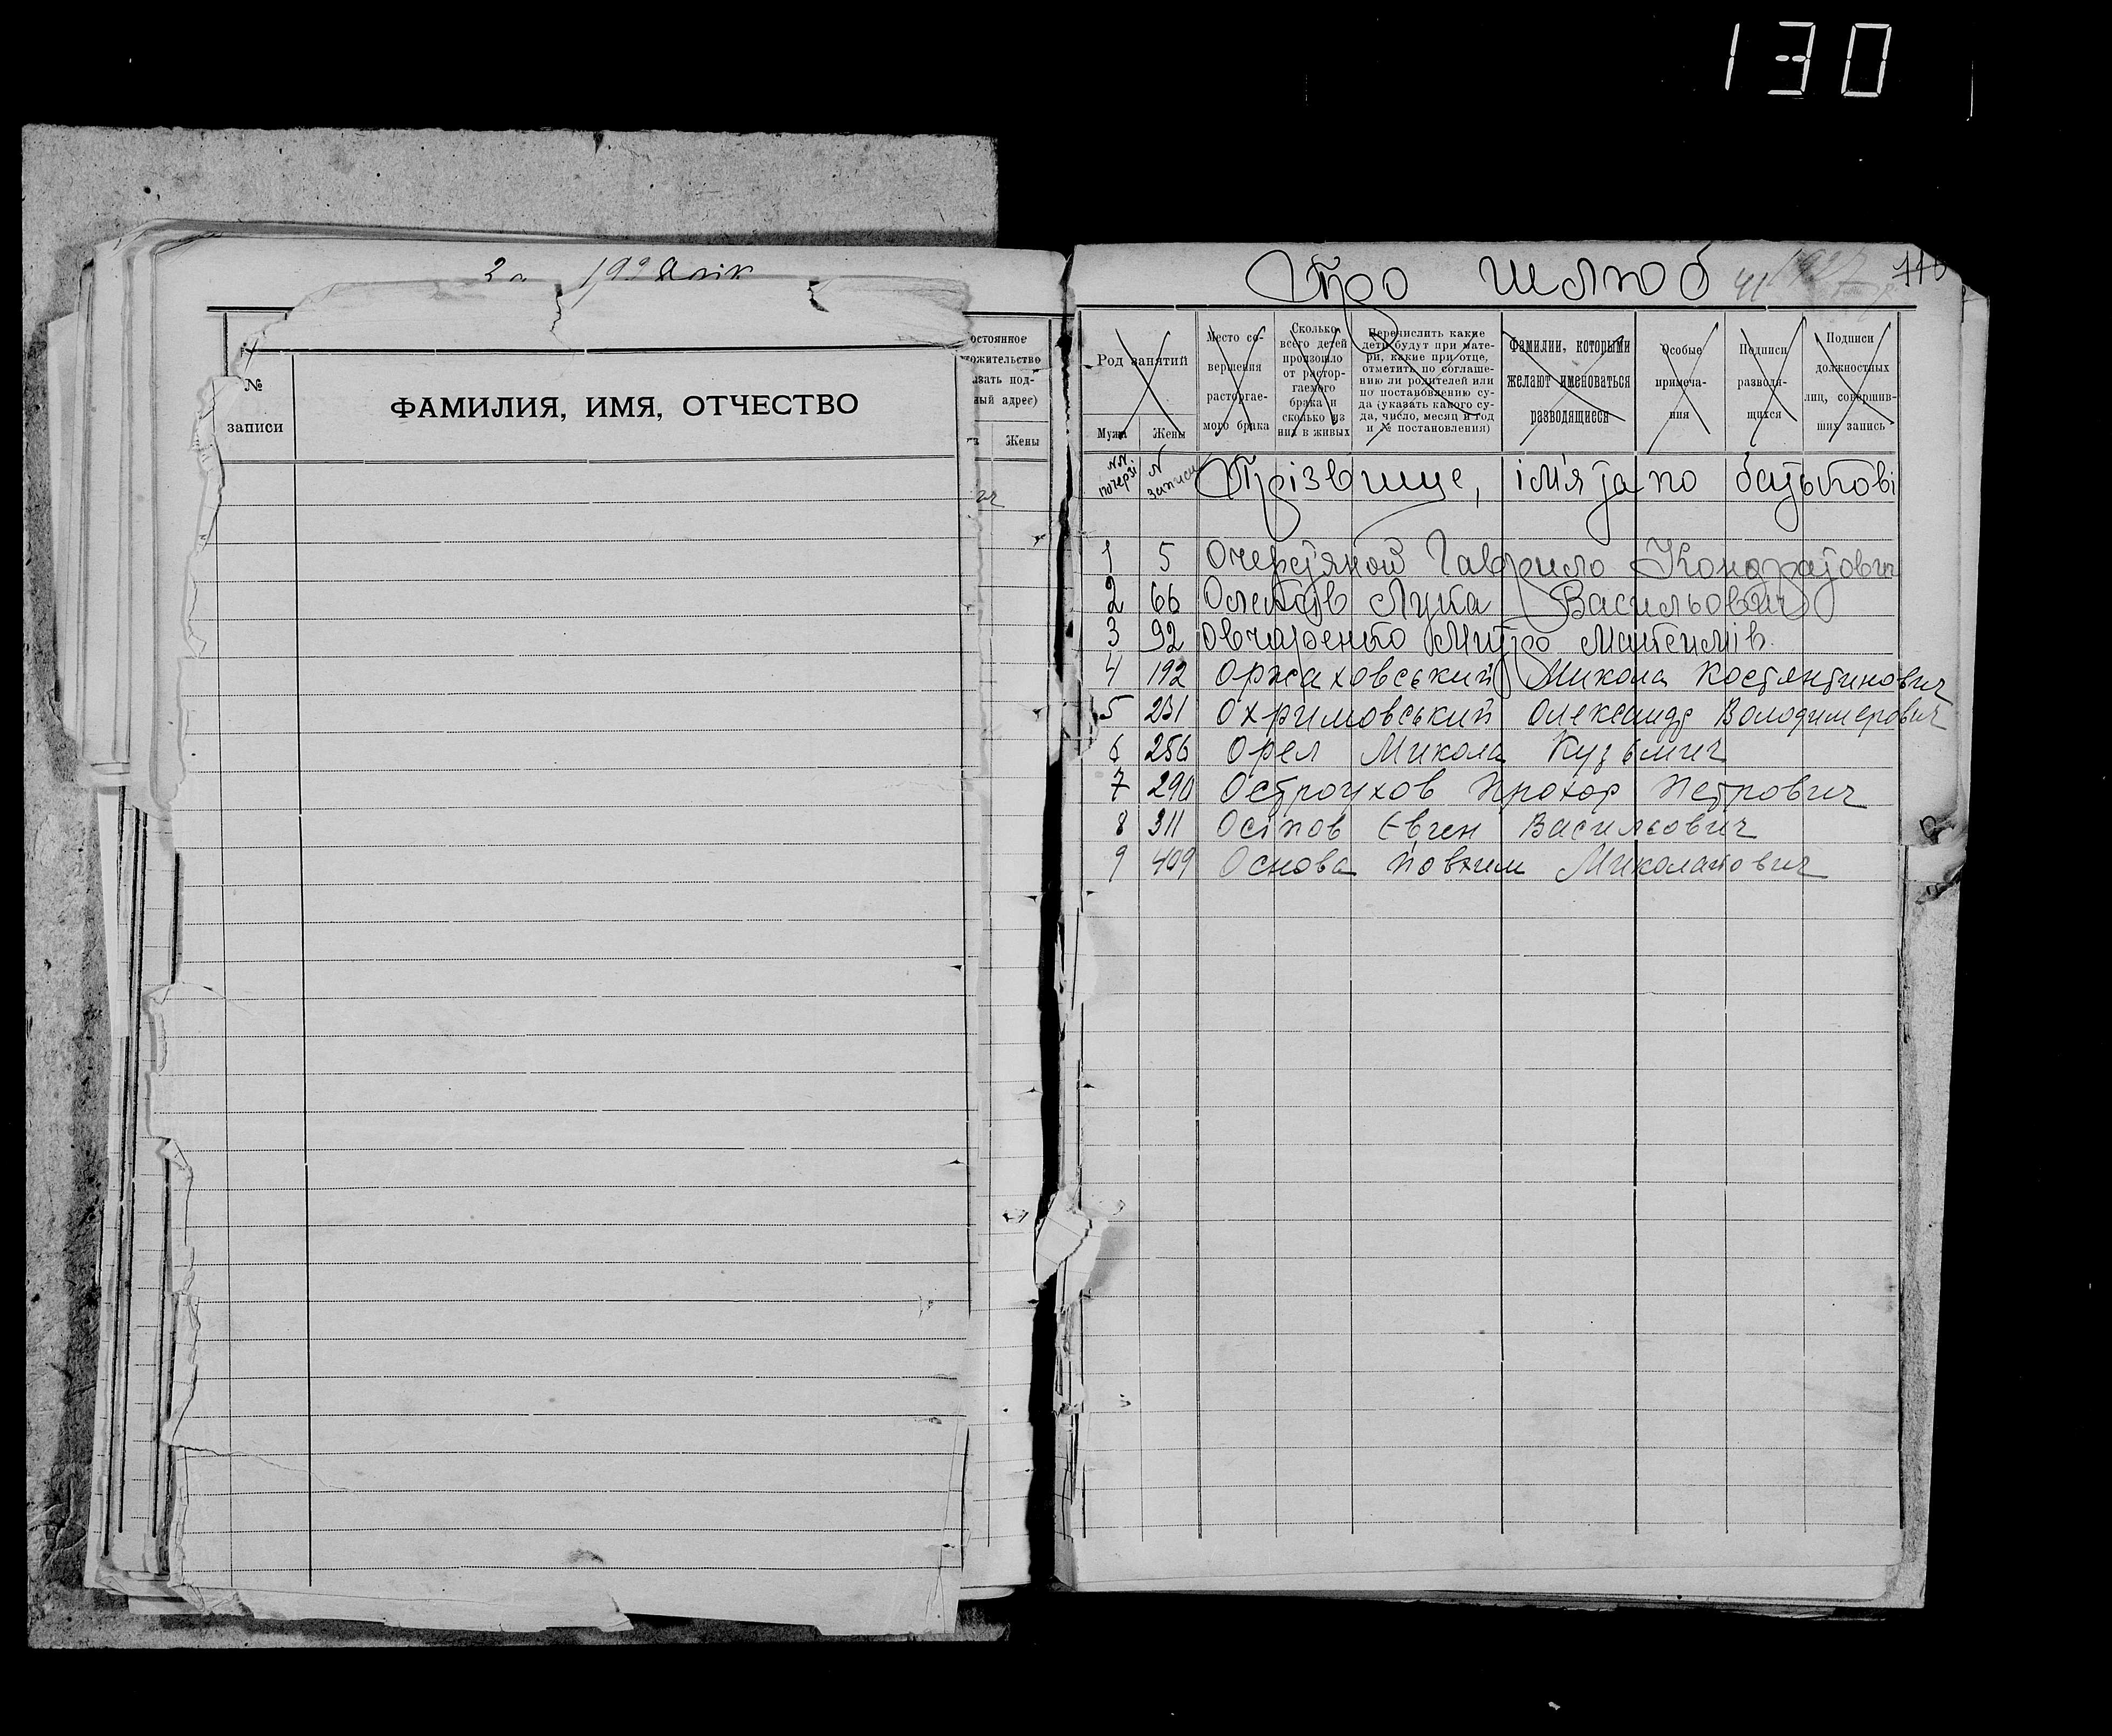 130
За 192 рік
№ записи
ФАМИЛИЯ, ИМЯ, ОТЧЕСТВО
остоянное
ожительство
азать под-
ный адрес)
Жены
Про шлюб 41 1927
Род занятий
Мужа
Жены
Место со-
вершения
расторгае-
мого брака
Сколько
всего детей
произошло
от растор-
гаемого
брака и
сколько из
них в живых
Перечислить какие
дети будут при мате-
ри, какие при отце,
отметить по соглаше-
нию ли родителей или
по постановлению су-
да (указать какого су-
да, число, месяц и год
и № постановления)
Фамилии, которыми
желают именоваться
разводящиеся
Особые
примеча-
ния
Подписи
разводя-
щихся
Подписи
должностных
лиц, совершив-
ших запись
NN почерзі
N записи
Прізвище, ім'я та по батькові
1 5 Очеретяной Гаврило Кондратович
2 66 Лука Васильович
3 92 Овчаренко Митро
4 192 Оржаховський Микола Костянтинович
5 231 Охримовський Олександр Володимерович
6 256 Орел Микола Кузьмич
7 290 Остроухов Прохор Петрович
8 311 Осіпов Євген Васильович
9 409 Основа Миколайович